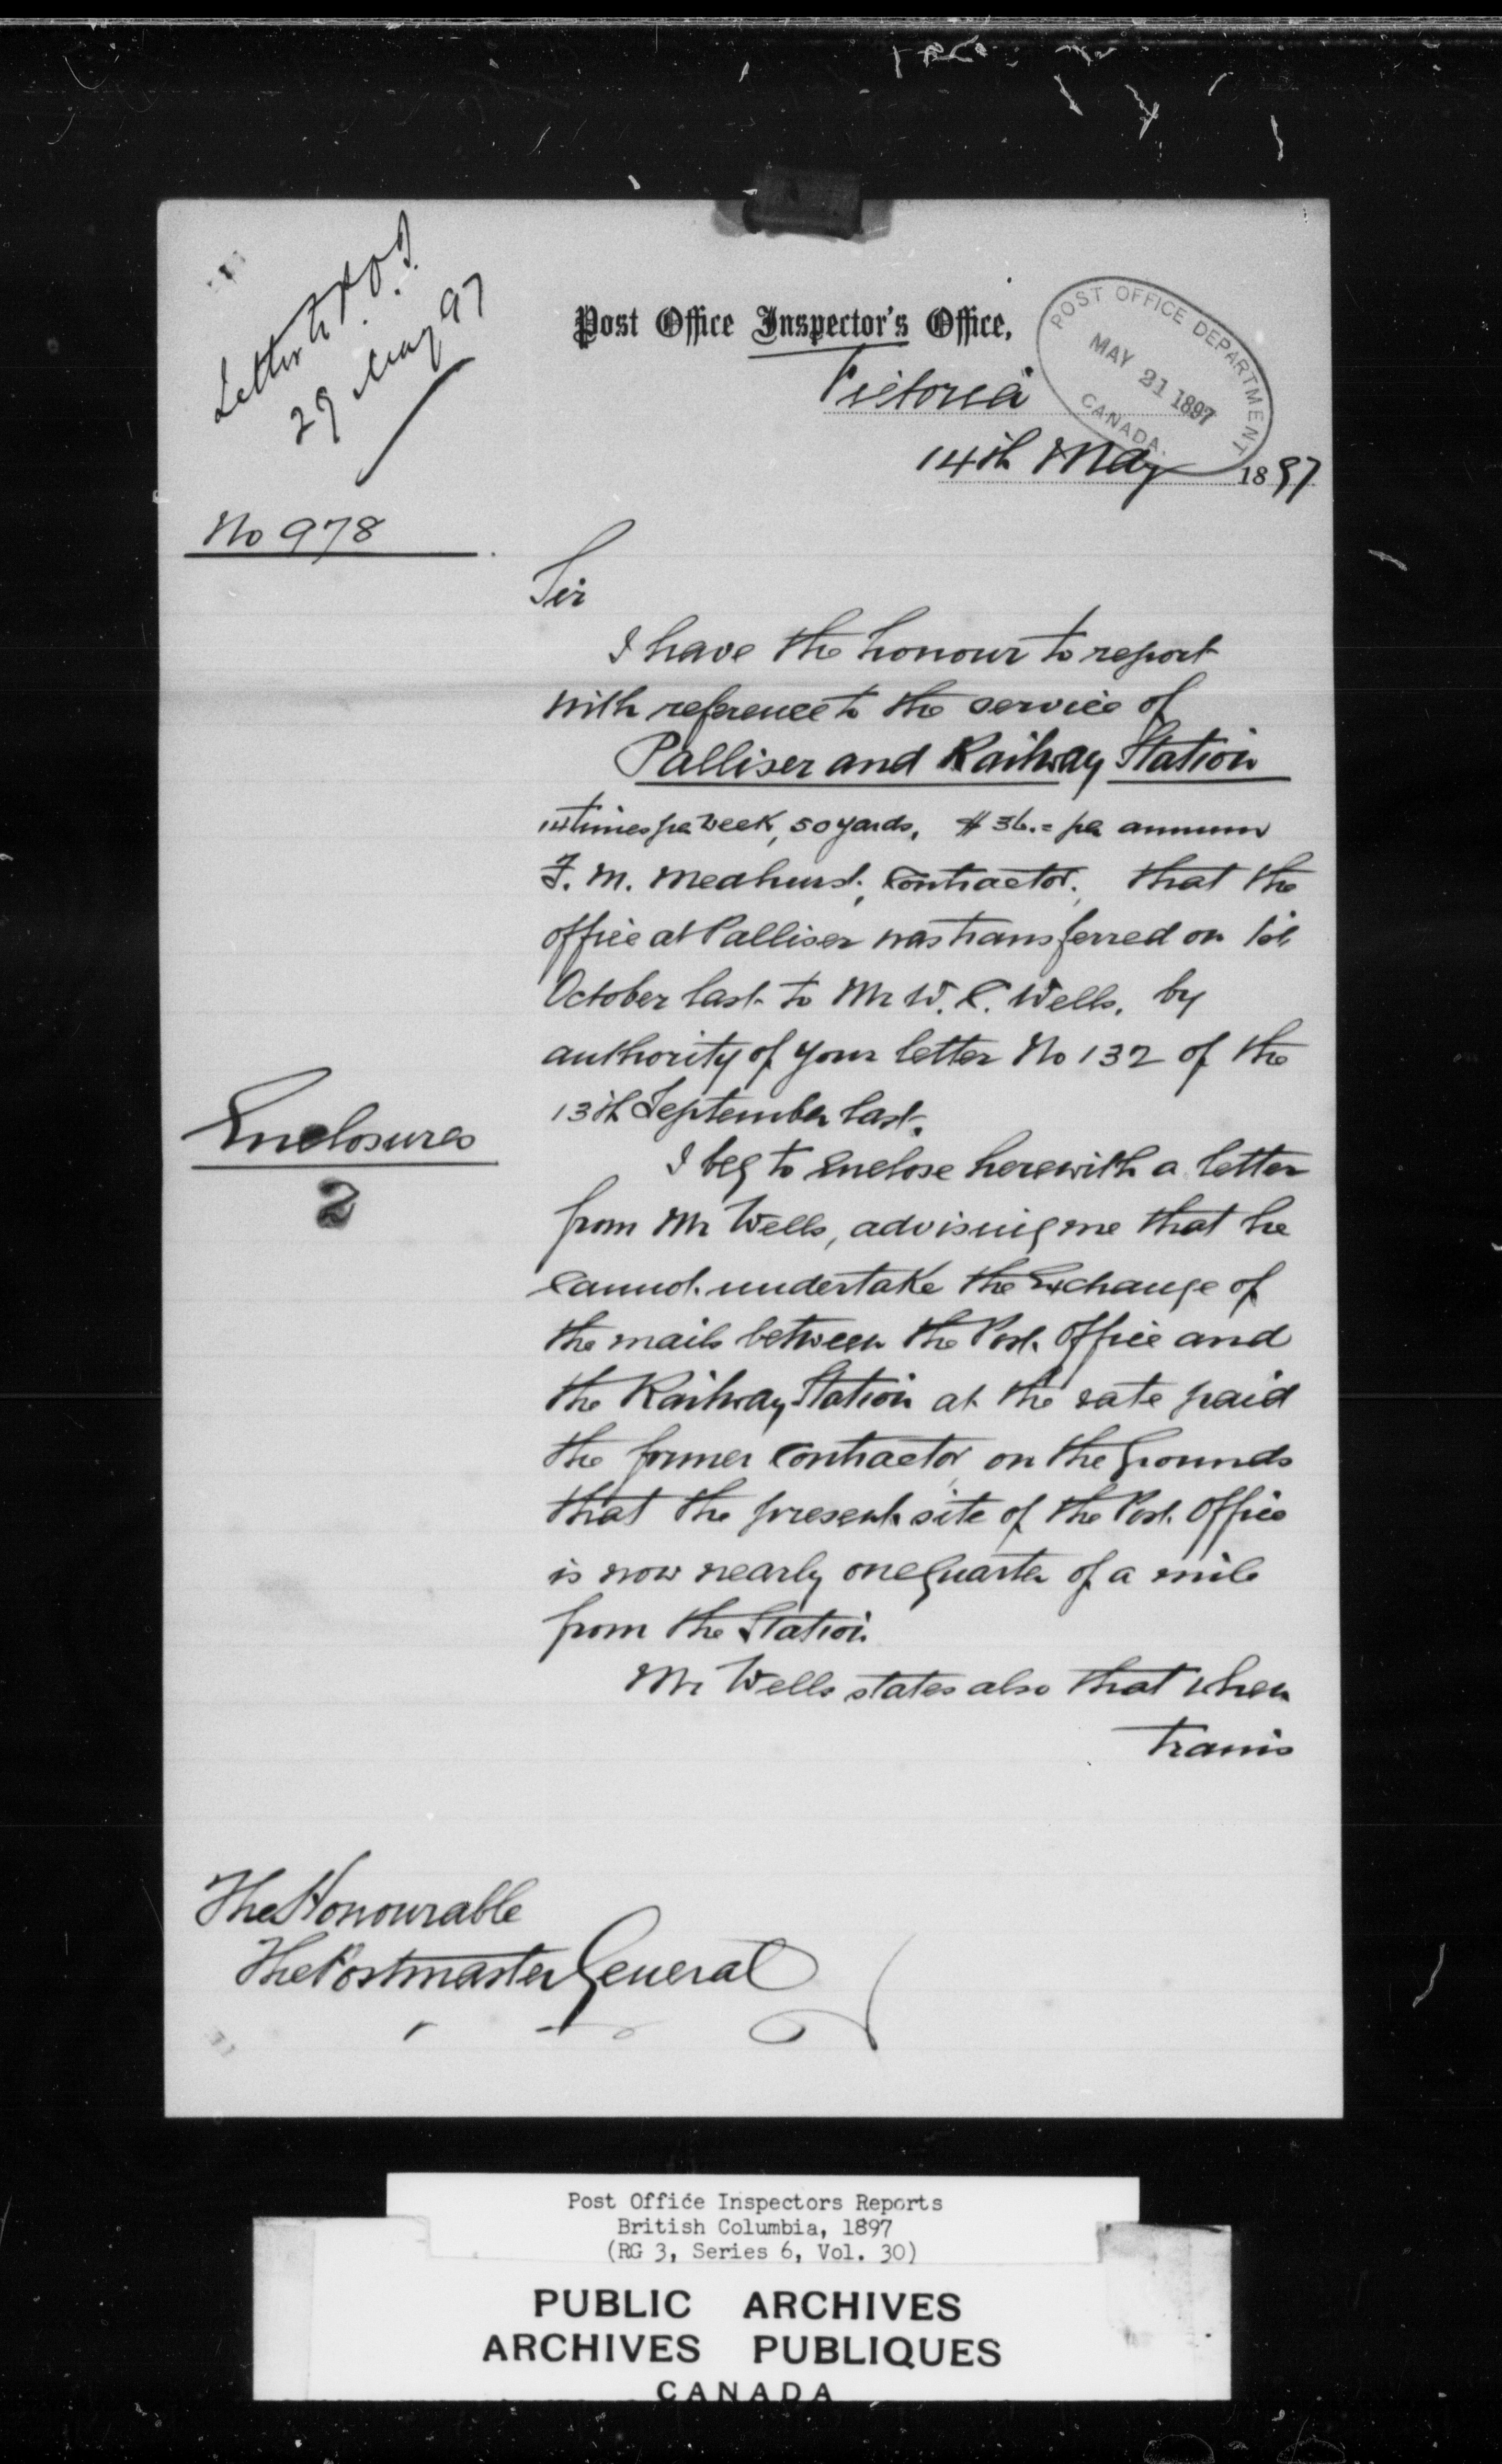 Letter to P.O.I.
29 May 97
Post Office Inspector's Office,
POST OFFICE DEPARTMENT
MAY 21 1897
CANADA.
Victoria
14th May 1897
No 978
Sir
I have the honour to report
with reference to the service of
Palliser and Railway Station
14 times per week, 50 yards, $36.= per annum
F. M. Medhurst, Contractor, that the
office at Palliser was transferred on 1st
October last to Mr W. C. Wells, by
authority of your letter No 132 of the
13th September last.
Enclosures
2
I beg to enclose herewith a letter
from Mr Wells, advising me that he
cannot undertake the Exchange of
the mails between the Post Office and
the Railway Station at the rate paid
the former Contractor on the grounds
that the present site of the Post Office
is now nearly one quarter of a mile
from the Station
Mr Wells states also that when
trains
The Honourable
The Postmaster General
Post Office Inspectors Reports
British Columbia, 1897
(RG 3, Series 6, Vol. 30)
PUBLIC ARCHIVES
ARCHIVES PUBLIQUES
CANADA